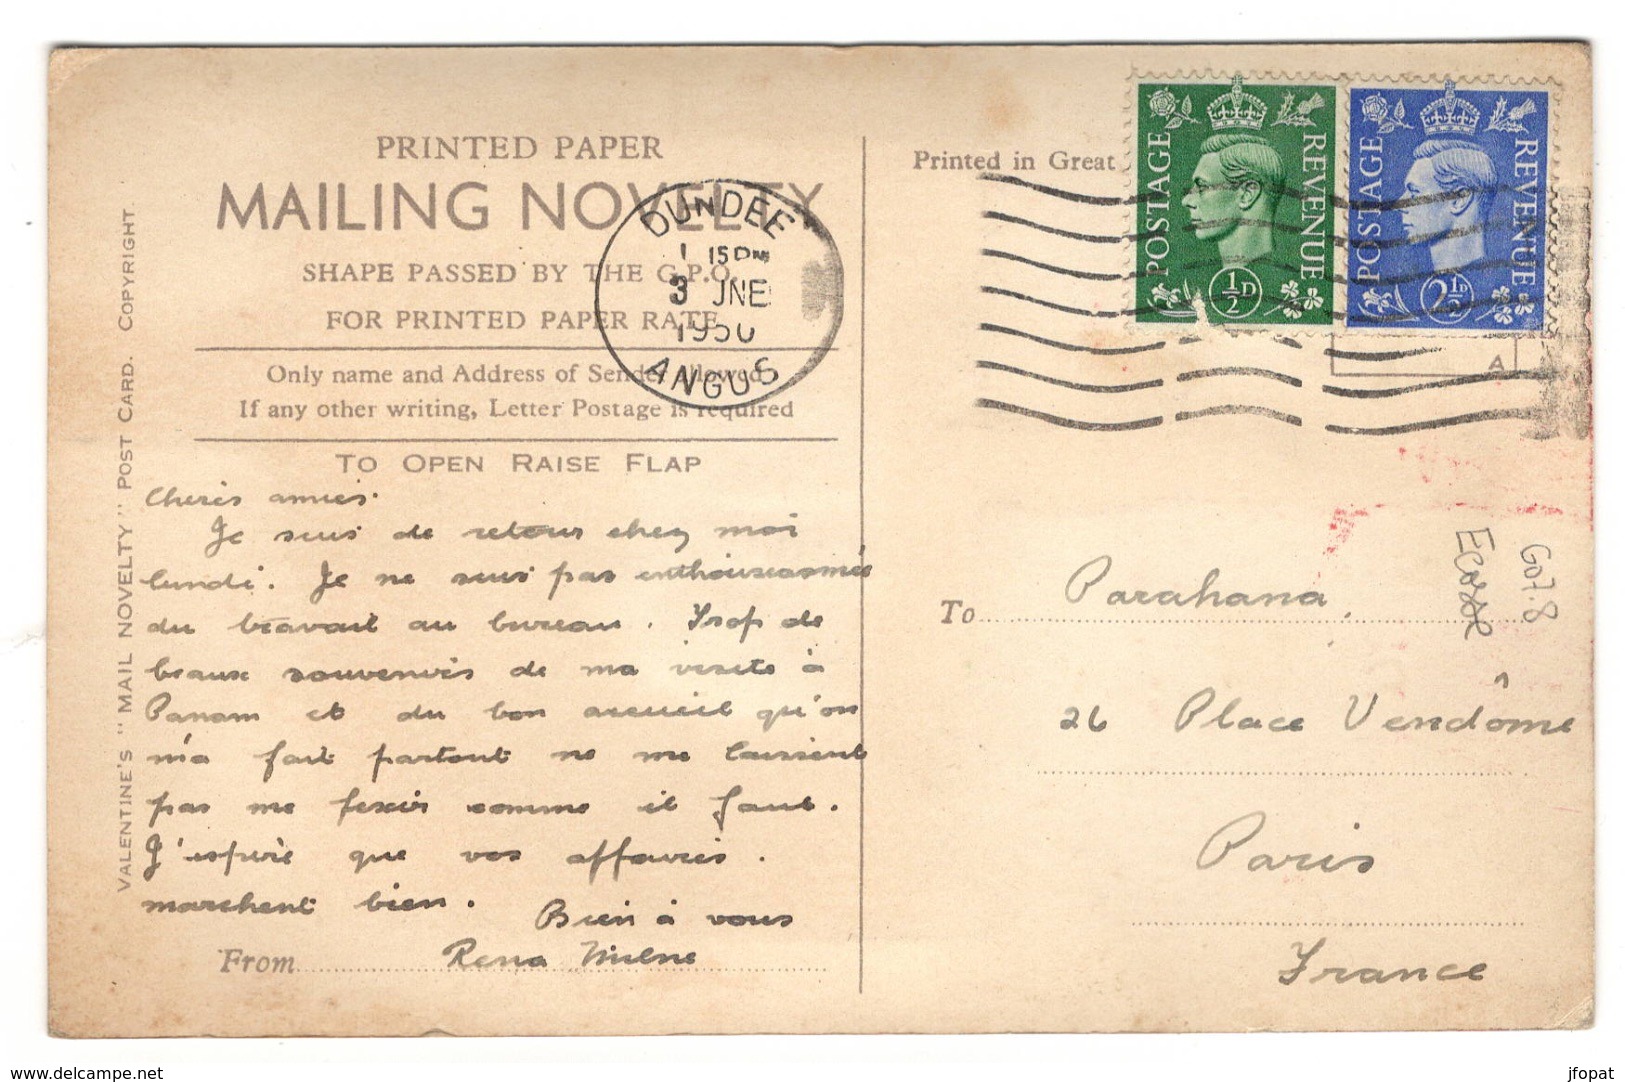 PRINTED PAPER
MAILING NOVELTY
SHAPE PASSED BY THE G.P.O.
FOR PRINTED PAPER RATE
Only name and Address of Sender allowed.
If any other writing, Letter Postage is required
TO OPEN RAISE FLAP
VALENTINE'S "MAIL NOVELTY" POST CARD. COPYRIGHT.
DUNDEE
1 15 PM
3 JNE
1950
ANGUS
Cheris amies.
Je suis de retour chez moi
lundi. Je ne suis pas enthousiasmée
du travail au bureau. Trop de
beaux souvenirs de ma visite à
Panam et du bon accueil qu'on
m'a fait partout ne me laissent
pas me fixer comme il faut.
J'espère que vos affaires.
marchent bien.
Bien à vous
From Rena Milne
Printed in Great
POSTAGE REVENUE
½D
POSTAGE REVENUE
2½D
A
To Parahana
26 Place Vendôme
Paris
France
Ecosse
G07.8
delcampe.net
jfopat